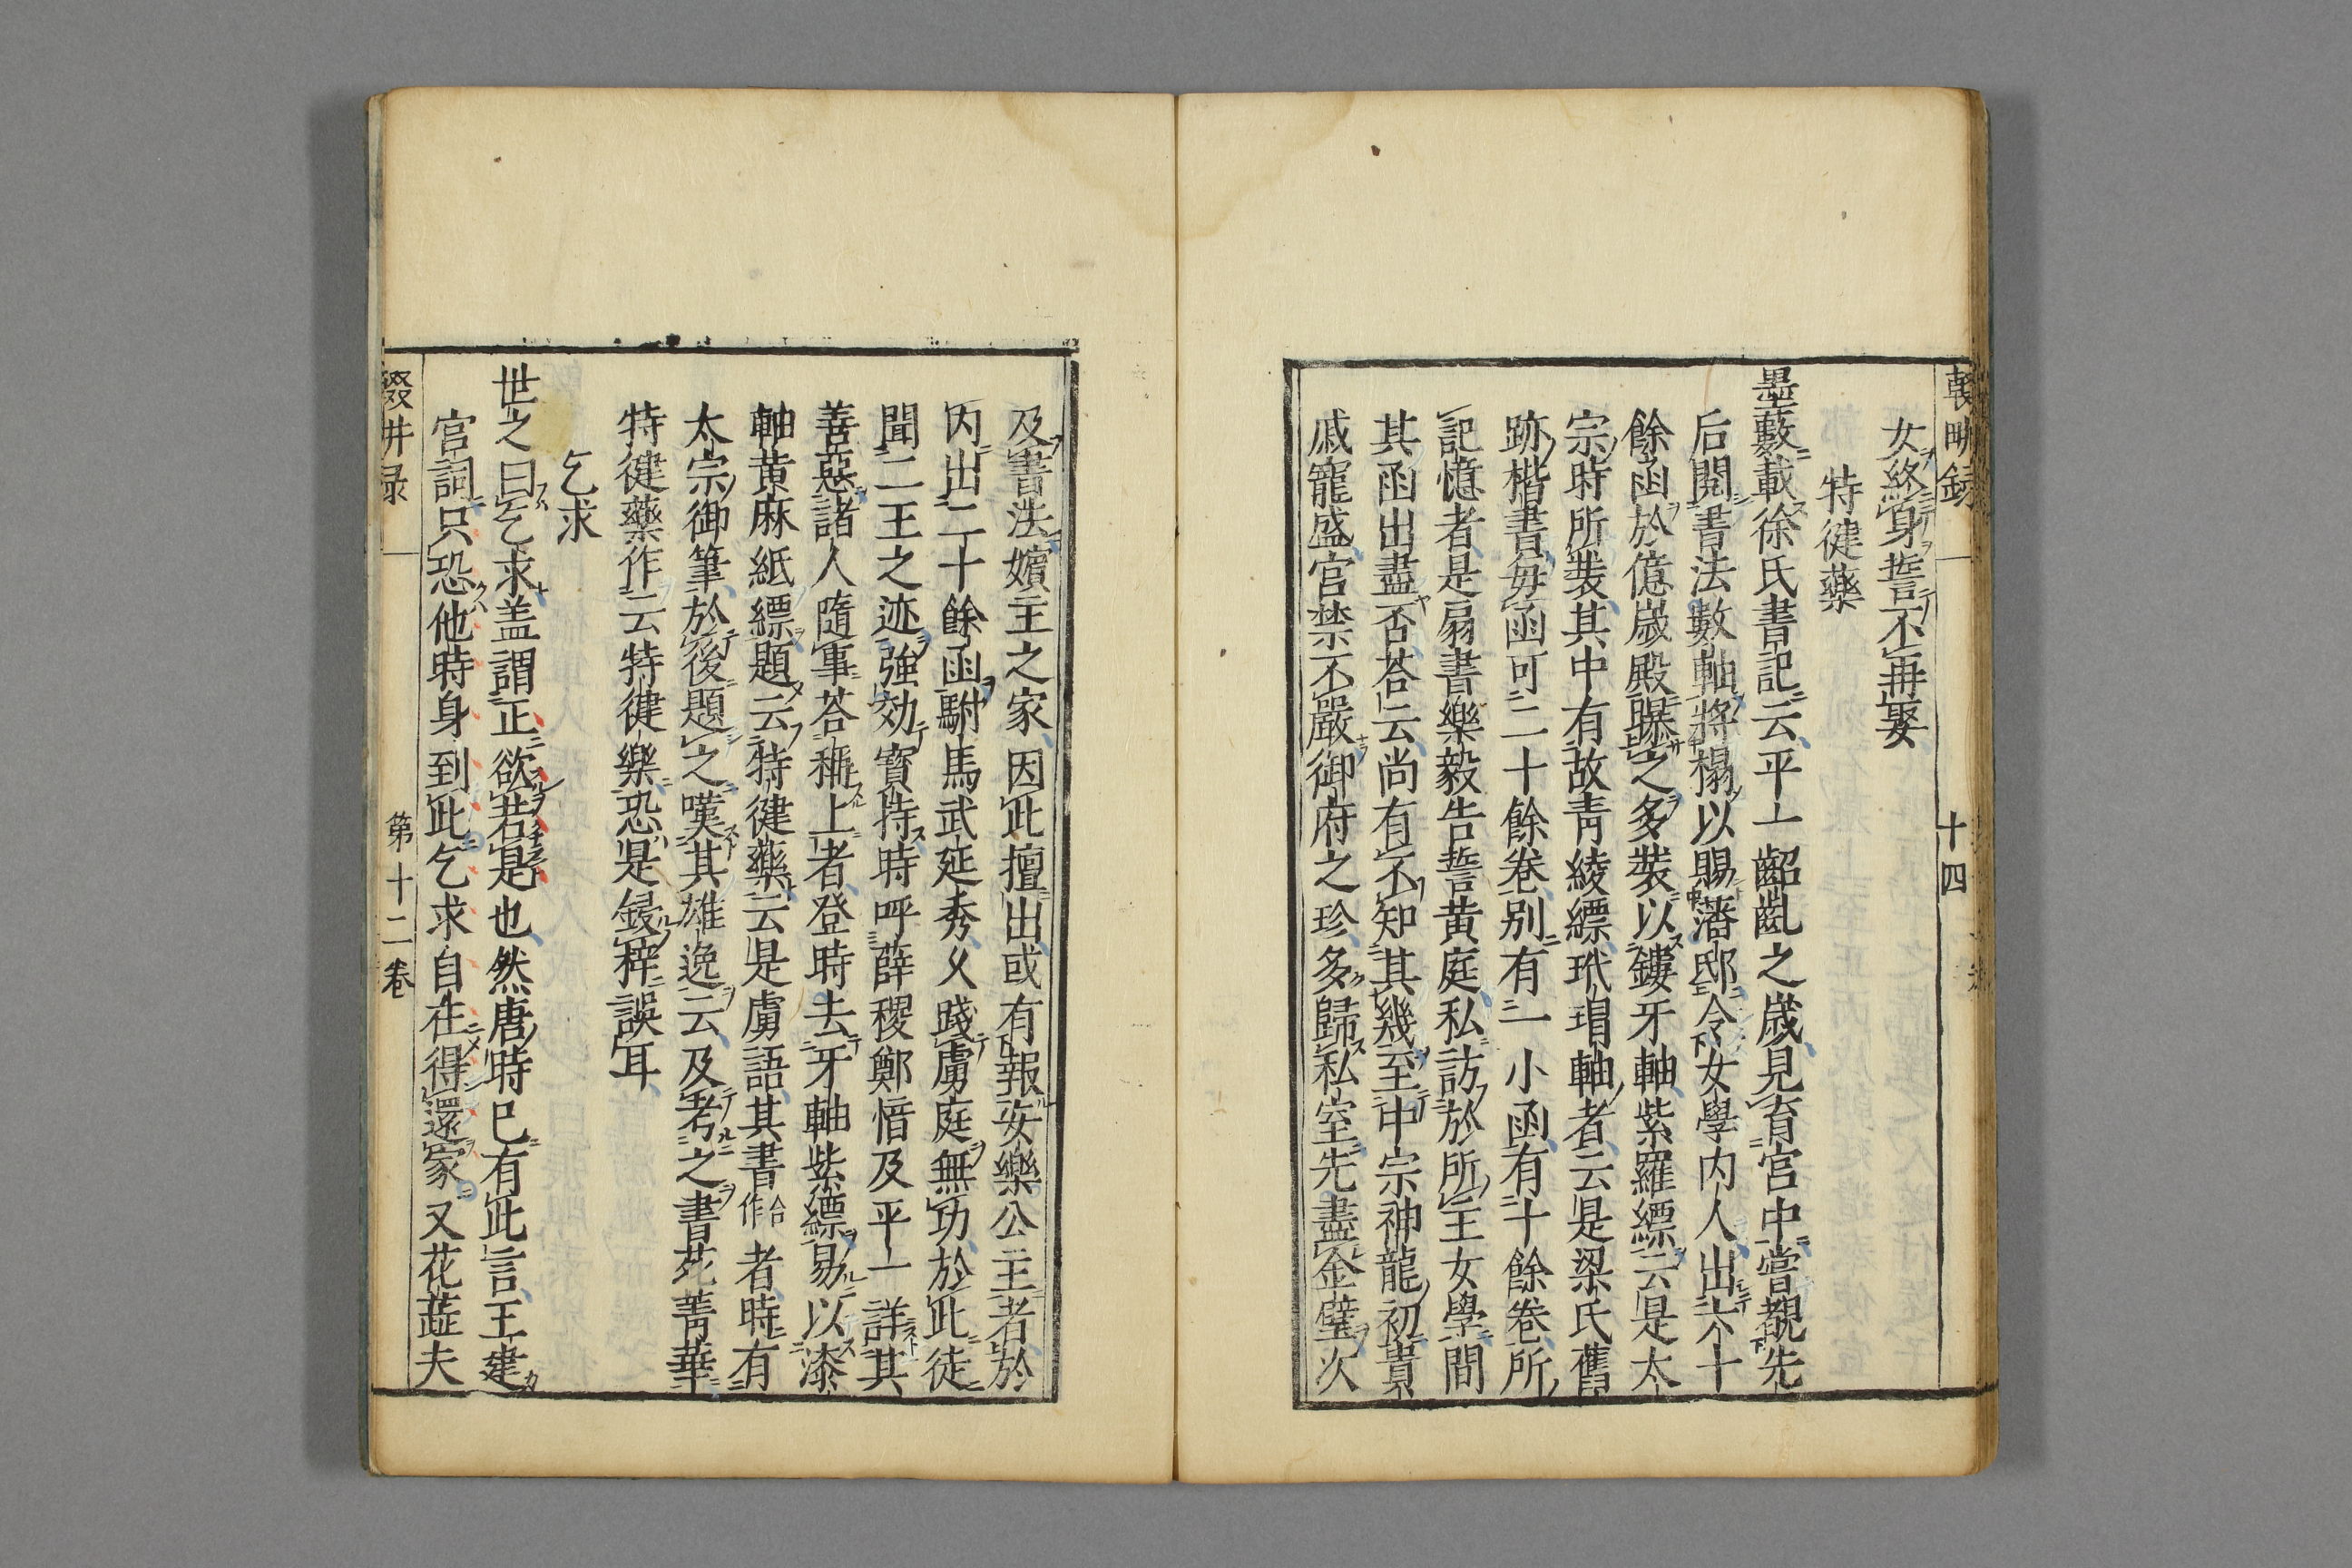 女終身誓不再娶
特健藥
墨藪載徐氏書記云平一齠齓之歳見育宮中嘗覩先
后閱書法數軸將榻以賜藩邸令女學内人出六十
餘函於億歳殿曝之多裝以鏤牙軸紫羅縹云是太
宗時所裝其中有故青綾縹玳瑁軸者云是梁氏舊
跡楷書每函可二十餘卷别有一小函有十餘卷所
記憶者是扇書樂毅告誓黄庭私訪於所主女學間
其函出盡否荅云尚有不知其幾至中宗神龍初貴
戚寵盛官禁不嚴御府之珍多歸私室先盡金璧次
及書法嬪主之家因此擅出或有報安樂公主者於
内出二十餘函駙馬武延秀久踐虜庭無功於此徒
聞二王之迹強効寳持時呼薛稷鄭愔及平一詳其
善惡諸人隨事荅稱上者登時去牙軸紫縹易以漆
軸黄麻紙縹題云特健藥云是虜語其書合作者時有
太宗御筆於後題之嘆其雄逸云及考之書苑菁華
特健藥作云特健樂恐是鋟梓誤耳
乞求
世之曰乞求盖謂正欲若是也然唐時已有此言王建
官詞只恐他時身到此乞求自在得還家又花蘂夫
輟畊錄
十四
第十二卷